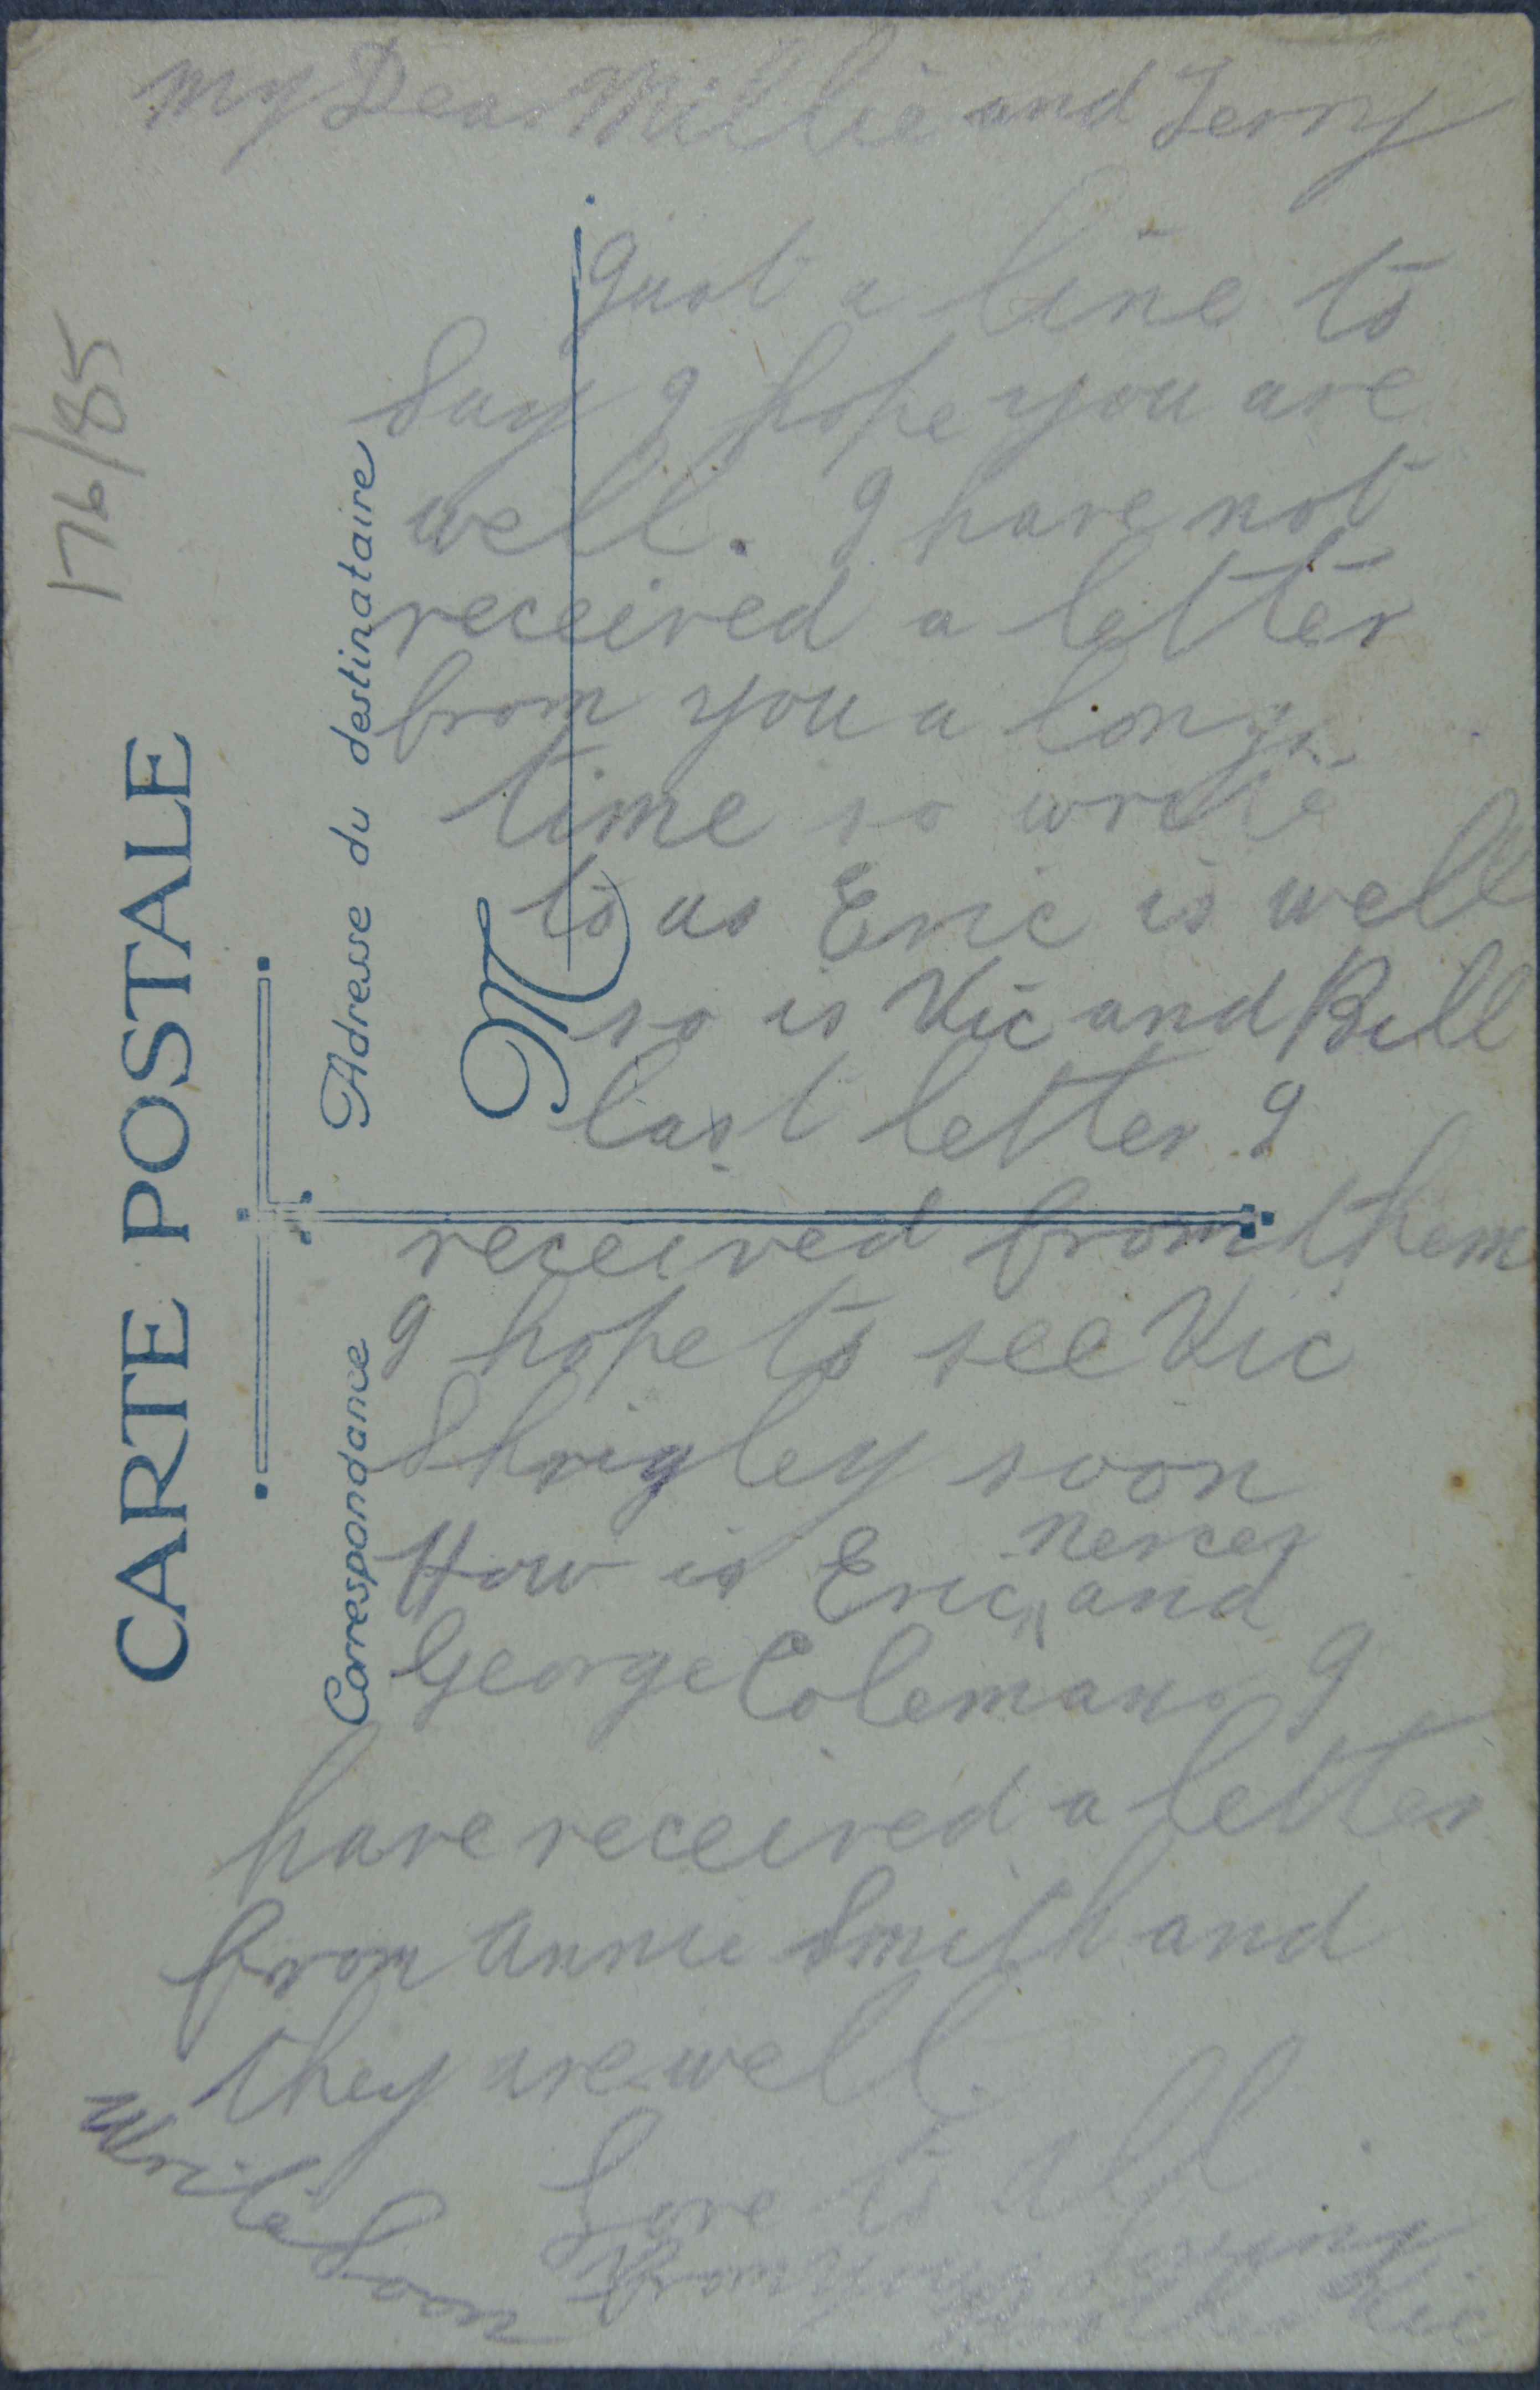 176/85
CARTE POSTALE
Correspondance
Adresse du destinataire
M
My Dear Millie and Terry
Just a line to
Say I hope you are
well. I have not
received a letter
from you a long
time so write
to us Eric is well
so is Vic and Bill
last letter I
received from them
I hope to see Vic
Shrigley soon
How is Eric and
George Colemans I
have received a letter
from Annie Smith and
they are well.
Love to All
Write Soon
loving
Vic